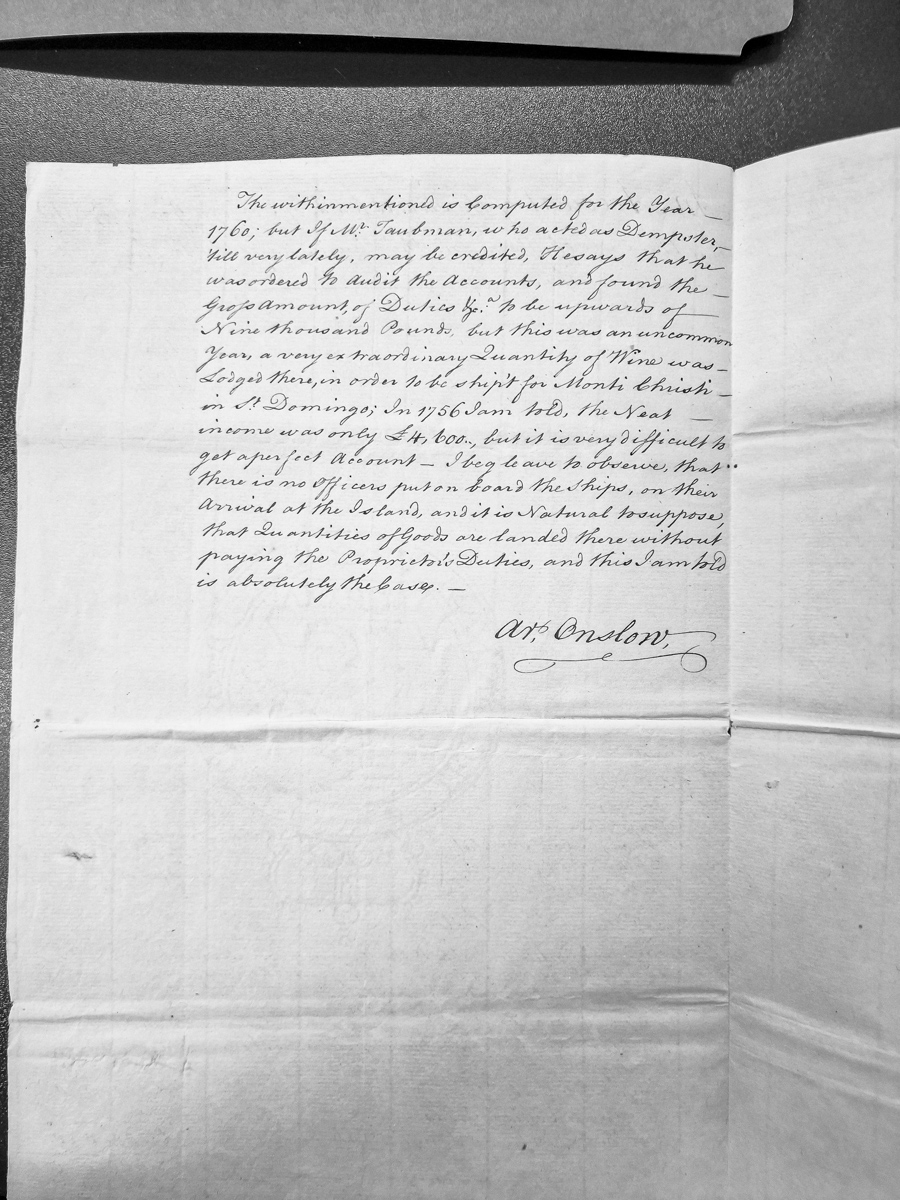 The withinmentioned is Computed for the Year —
1760; but If Mr. Taubman, who acted as Dempster, —
till very lately, may be credited, He says that he
was ordered to Audit the Accounts, and found the —
Gross Amount, of Duties &c.a to be upwards of
Nine thousand Pounds, but this was an uncommon
Year, a very extraordinary Quantity of Wine was —
Lodged there, in order to be ship't for Monti Christi —
in St. Domingo; In 1756 I am told, the Neat —
income was only £4,600.., but it is very difficult to
get a perfect Account — I beg leave to observe, that
there is no Officers put on board the Ships, on their
Arrival at the Island, and it is Natural to suppose,
that Quantities of Goods are landed there without
paying the Proprietor's Duties, and this I am told
is absolutely the Case. —
Onslow,